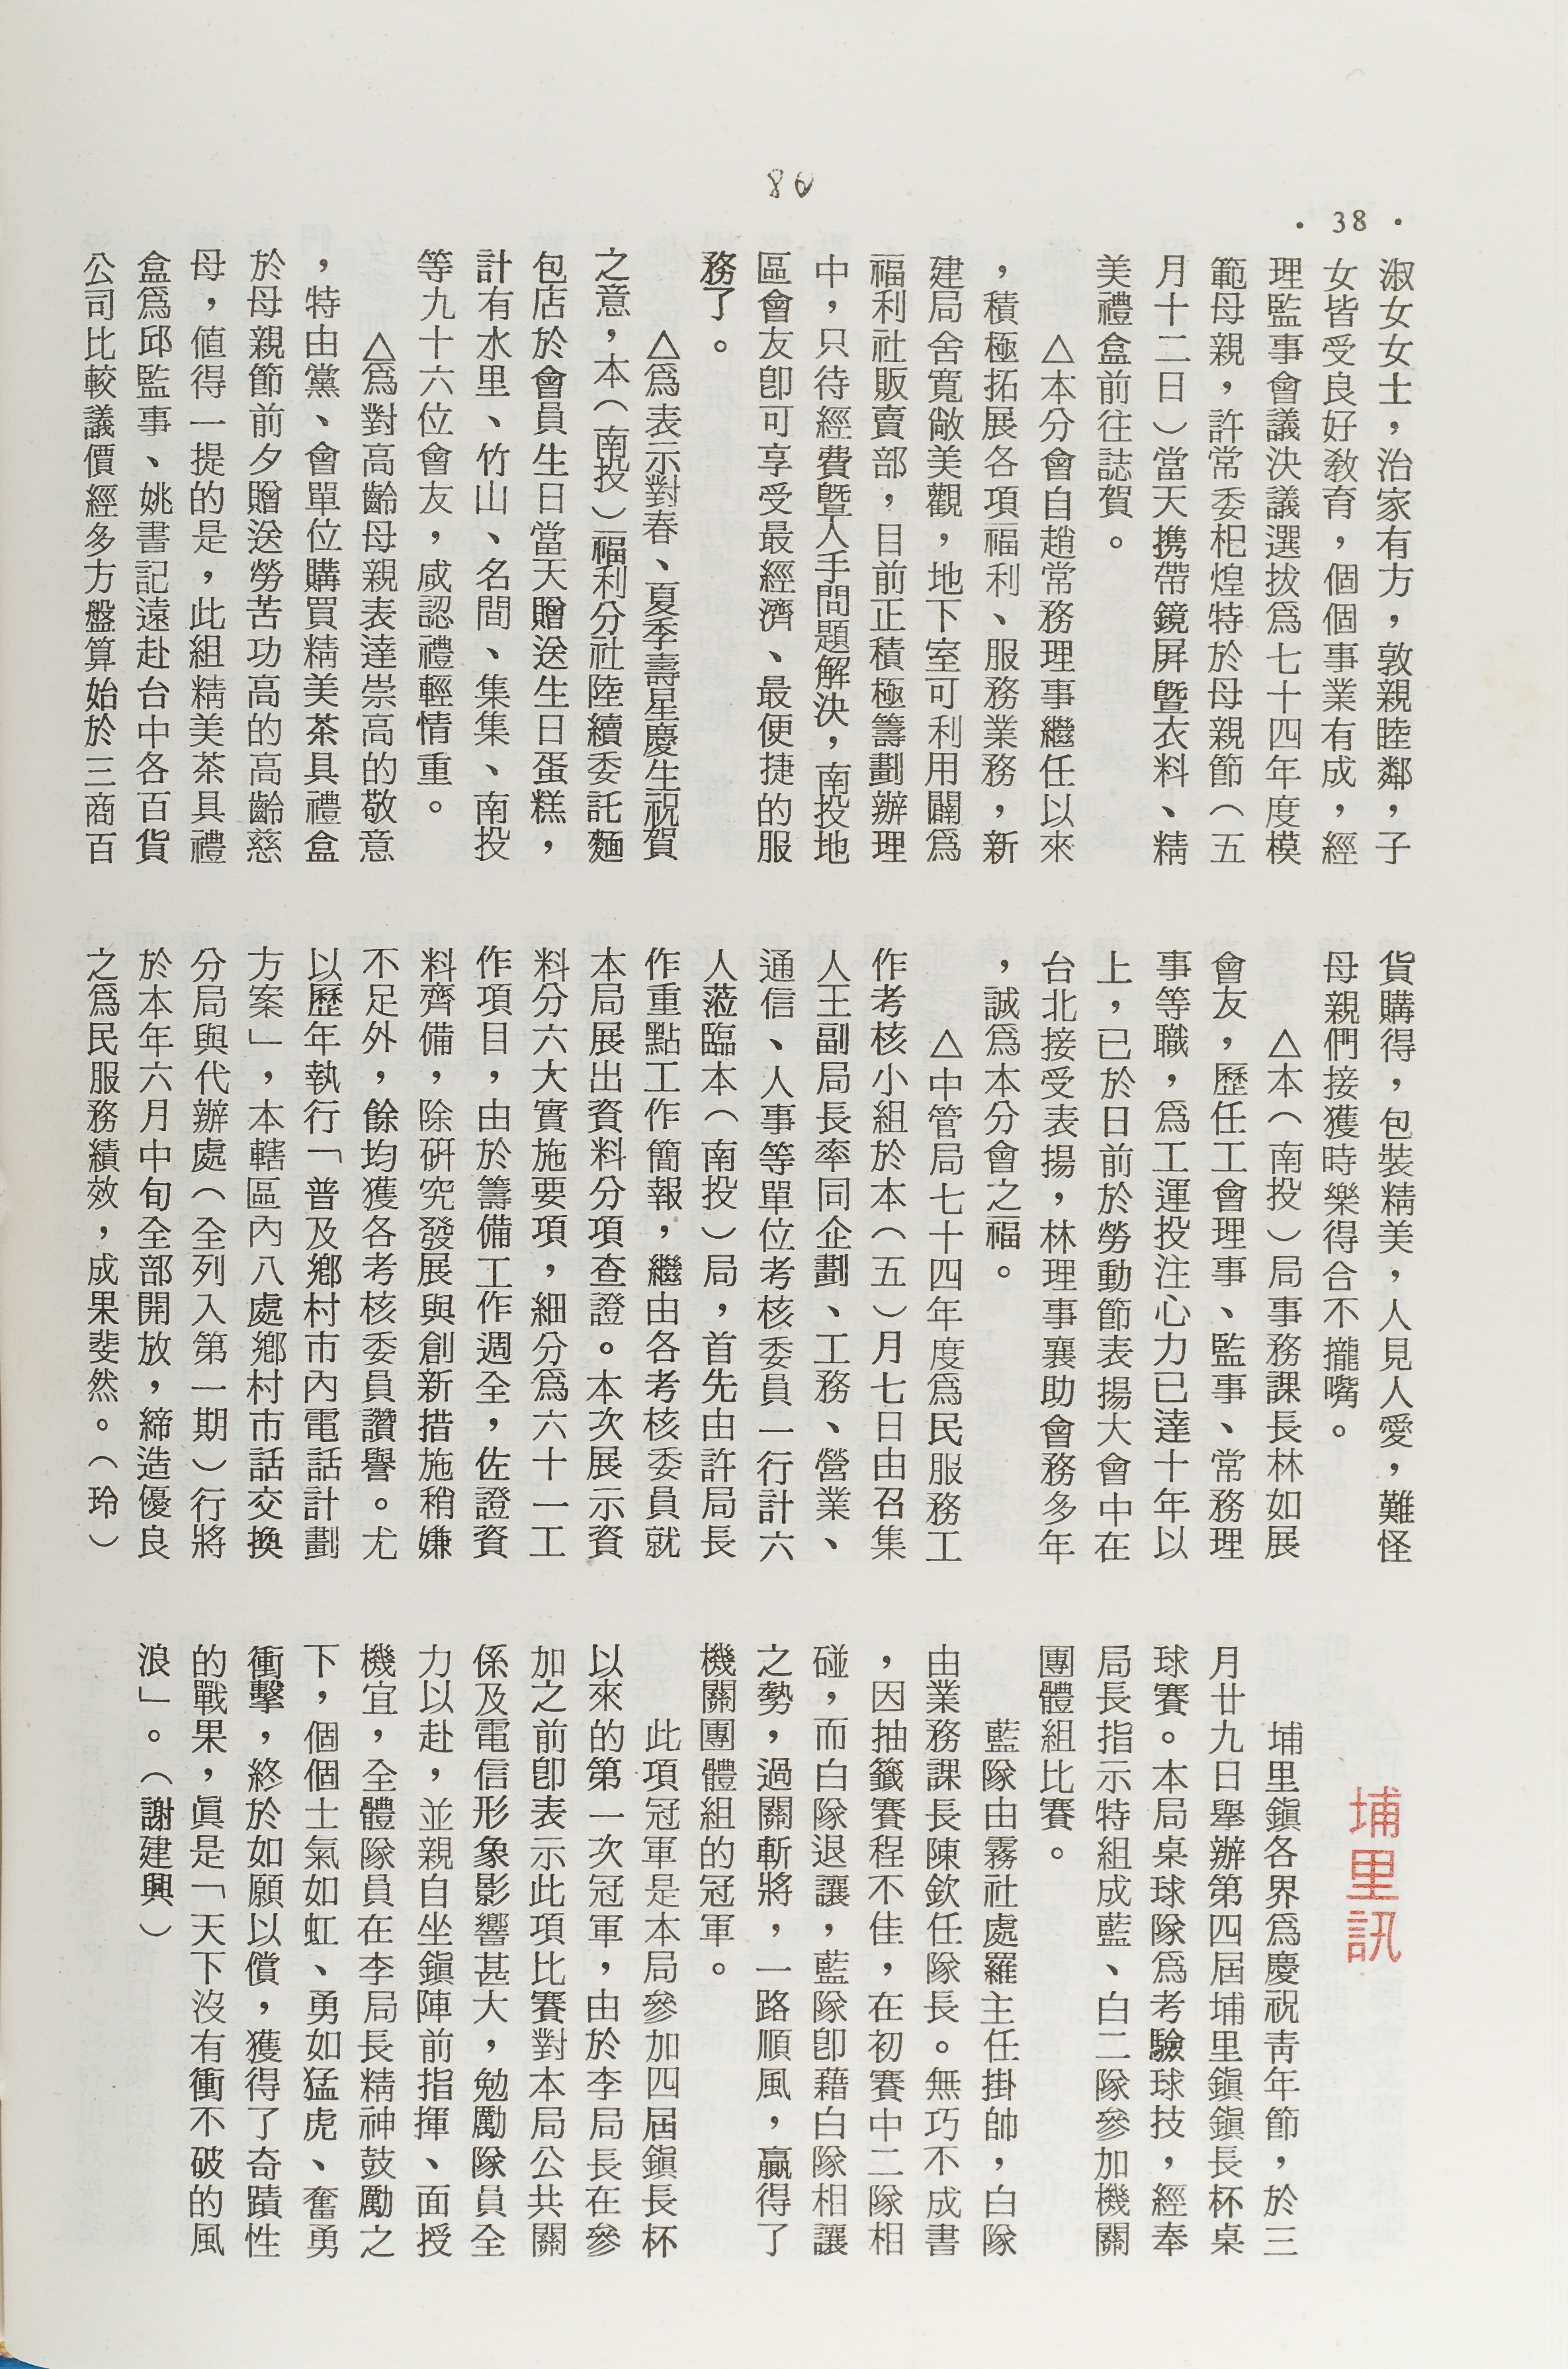 86
・38・
淑女女士，治家有方，敦親睦鄰，子
女皆受良好教育，個個事業有成，經
理監事會議決議選拔爲七十四年度模
範母親，許常委杞煌特於母親節（五
月十二日）當天携帶鏡屏暨衣料、精
美禮盒前往誌賀。
△本分會自趙常務理事繼任以來
，積極拓展各項福利、服務業務，新
建局舍寬敞美觀，地下室可利用闢爲
福利社販賣部，目前正積極籌劃辦理
中，只待經費暨人手問題解決，南投地
區會友卽可享受最經濟、最便捷的服
務了。
△爲表示對春、夏季壽星慶生祝賀
之意，本（南投）福利分社陸續委託麵
包店於會員生日當天贈送生日蛋糕，
計有水里、竹山、名間、集集、南投
等九十六位會友，咸認禮輕情重。
△爲對高齡母親表達崇高的敬意
，特由黨、會單位購買精美茶具禮盒
於母親節前夕贈送勞苦功高的高齡慈
母，値得一提的是，此組精美茶具禮
盒爲邱監事、姚書記遠赴台中各百貨
公司比較議價經多方盤算始於三商百
貨購得，包裝精美，人見人愛，難怪
母親們接獲時樂得合不攏嘴。
△本（南投）局事務課長林如展
會友，歷任工會理事、監事、常務理
事等職，爲工運投注心力已達十年以
上，已於日前於勞動節表揚大會中在
台北接受表揚，林理事襄助會務多年
，誠爲本分會之福。
△中管局七十四年度爲民服務工
作考核小組於本（五）月七日由召集
人王副局長率同企劃、工務、營業、
通信、人事等單位考核委員一行計六
人蒞臨本（南投）局，首先由許局長
作重點工作簡報，繼由各考核委員就
本局展出資料分項查證。本次展示資
料分六大實施要項，細分爲六十一工
作項目，由於籌備工作週全，佐證資
料齊備，除研究發展與創新措施稍嫌
不足外，餘均獲各考核委員讚譽。尤
以歷年執行「普及鄉村市內電話計劃
方案」，本轄區內八處鄉村市話交換
分局與代辦處（全列入第一期）行將
於本年六月中旬全部開放，締造優良
之爲民服務績效，成果斐然。（玲）
埔里訊
埔里鎭各界爲慶祝靑年節，於三
月廿九日舉辦第四屆埔里鎭鎭長杯桌
球賽。本局桌球隊爲考驗球技，經奉
局長指示特組成藍、白二隊參加機關
團體組比賽。
藍隊由霧社處羅主任掛帥，白隊
由業務課長陳欽任隊長。無巧不成書
，因抽籤賽程不佳，在初賽中二隊相
碰，而白隊退讓，藍隊卽藉白隊相讓
之勢，過關斬將，一路順風，贏得了
機關團體組的冠軍。
此項冠軍是本局參加四屆鎭長杯
以來的第一次冠軍，由於李局長在參
加之前卽表示此項比賽對本局公共關
係及電信形象影響甚大，勉勵隊員全
力以赴，並親自坐鎭陣前指揮、面授
機宜，全體隊員在李局長精神鼓勵之
下，個個士氣如虹、勇如猛虎、奮勇
衝擊，終於如願以償，獲得了奇蹟性
的戰果，眞是「天下沒有衝不破的風
浪」。（謝建興）